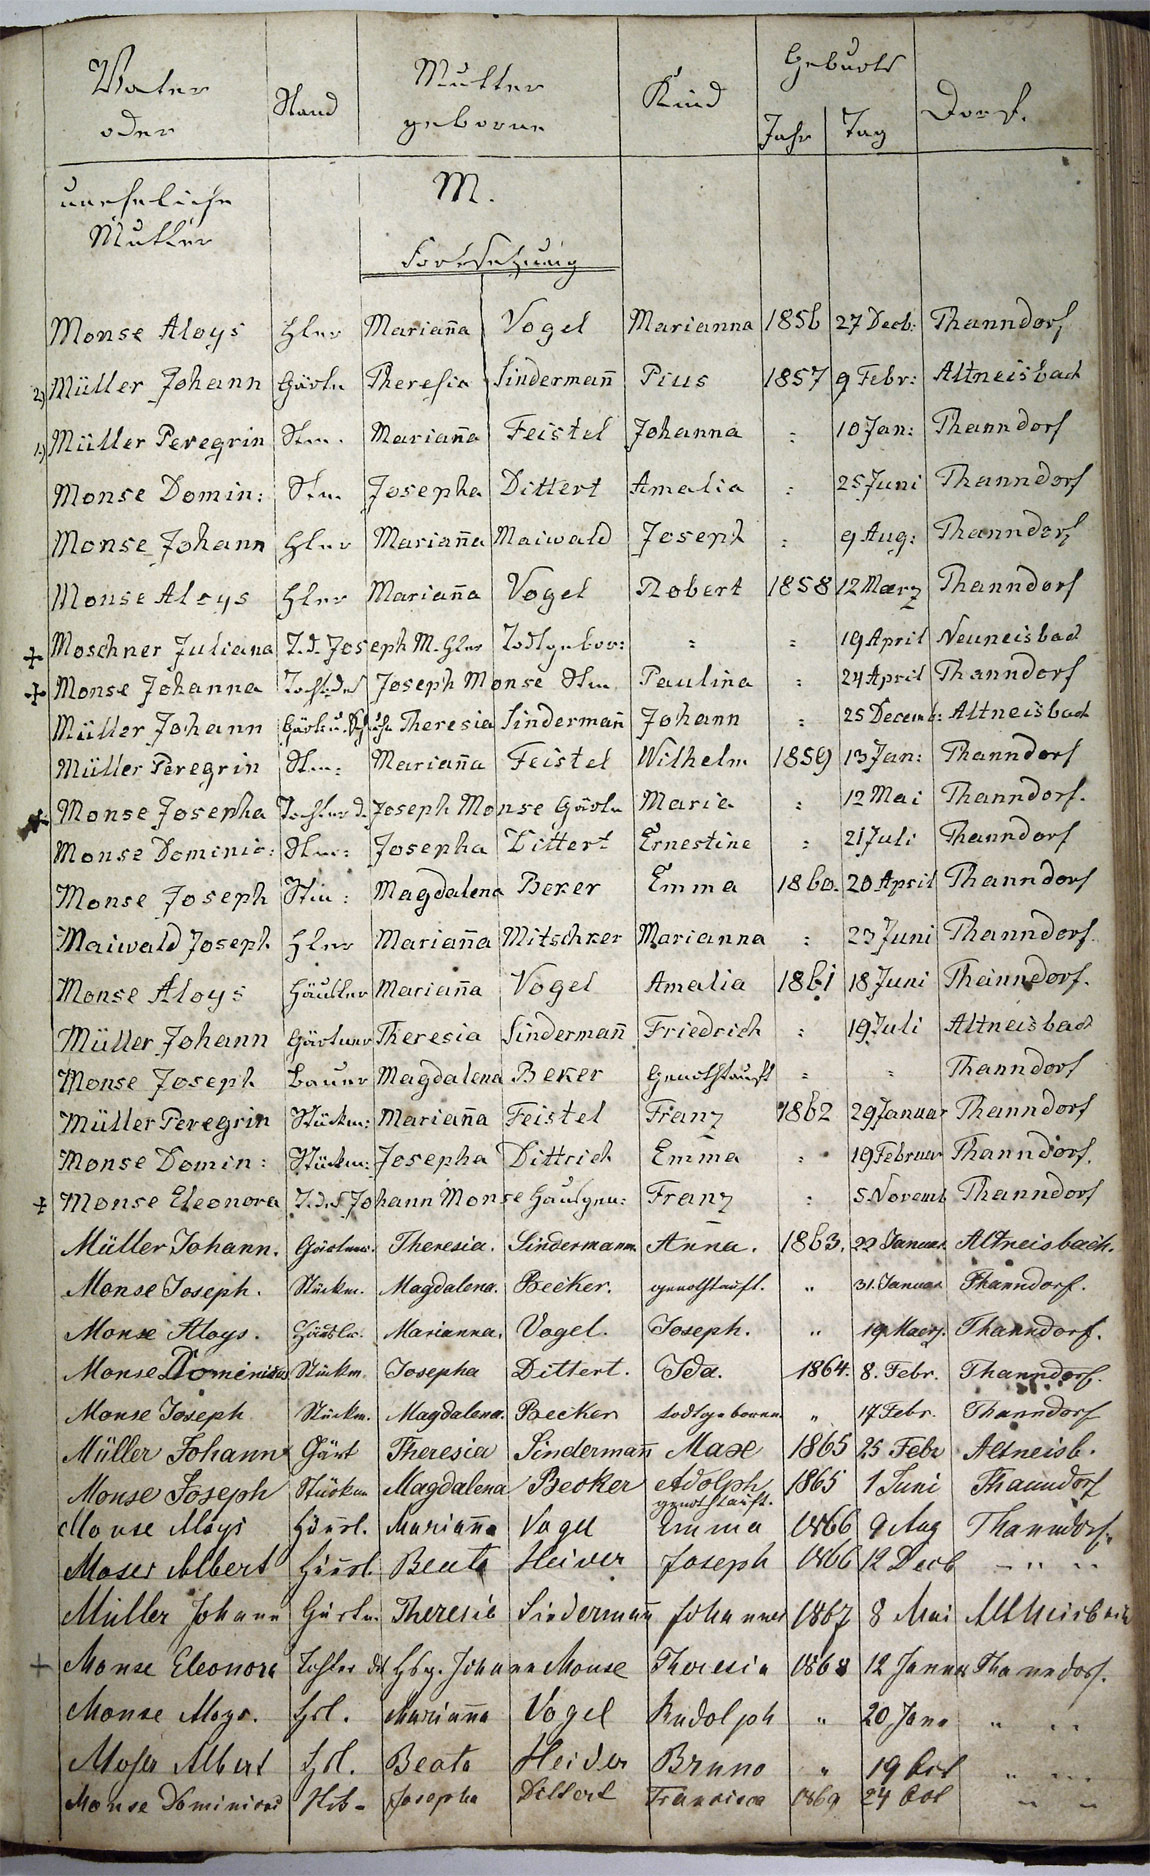 Vater
oder
uneheliche
Mutter
Stand
Mutter
geborne
Kind
Geburts
Jahr Tag
Dorf.
M.
Fortsetzung
Monse Aloys Hler Mariaña Vogel Marianna 1856 27 Decb: Thanndorf
2.) Müller Johann Gärtn Theresia Sindermañ Pius 1857 9 Febr: Altneisbach
1.) Müller Peregrin Stm. Mariaña Feistel Johanna : 10 Jan: Thanndorf
Monse Domin: Stm. Josepha Dittert Amalia : 25 Juni Thanndorf
Monse Johann Hler Mariaña Maiwald Joseph : 9 Aug: Thanndorf
Monse Aloys Hler Mariaña Vogel Robert 1858 12 Maerz Thanndorf
+ Moschner Juliana T.d. Joseph M. Hler Todtgebor: : : 19 April Neuneisbach
+ Monse Johanna Tocht.des Joseph Monse Stm Paulina : 24 April Thanndorf
Müller Johann Gärtn u. Theresia Sindermañ Johann : 25 Decemb: Altneisbach
Müller Peregrin Stm: Mariaña Feistel Wilhelm 1859 13 Jan: Thanndorf
+ Monse Josepha Tochter d. Joseph Monse Gärtn Maria : 12 Mai Thanndorf.
Monse Dominic: Stm: Josepha Dittert Ernestine : 21 Juli Thanndorf
Monse Joseph Stm: Magdalena Beker Emma 1860. 20 April Thanndorf
Maiwald Joseph Hler Mariaña Mitschker Marianna : 23 Juni Thanndorf
Monse Aloys Häusler Mariaña Vogel Amalia 1861 18 Juni Thanndorf.
Müller Johann Gärtner Theresia Sindermañ Friedrich : 19 Juli Altneisbach
Monse Joseph Bauer Magdalena Beker Genothtauft : : Thanndorf
Müller Peregrin Stückm: Mariaña Feistel Franz 1862 29 Januar Thanndorf
Monse Domin: Stückm: Josepha Dittrich Emma : 19 Februar Thanndorf.
+ Monse Eleonora T. des Johann Monse Hausgen: Franz : 5. Novemb Thanndorf
Müller Johann. Gärtner. Theresia. Sindermann. Anna. 1863. 22 Januar Altneisbach.
Monse Joseph. Stückm. Magdalena. Becker. genothtauft. " 31. Januar Thanndorf.
Monse Aloys. Häusler. Marianna. Vogel. Joseph. " 19. Maerz. Thanndorf.
Monse Dominicus Stückm. Josepha Dittert. Ida. 1864. 8. Febr. Thanndorf.
Monse Joseph Stückm. Magdalena. Becker todtgeboren " 17 Febr. Thanndorf
Müller Johann Gärt Theresia Sindermañ Max 1865 25 Febr Altneisb.
Monse Joseph Stückm Magdalena Becker Adolph genothtauft. 1865 1 Juni Thanndorf
Monse Aloys Häusl. Mariaña Vogel Emma 1866 9 Aug Thanndorf.
Moser Albert Häusl. Beata Heider Joseph 1866 12 Decb - " "
Müller Johann Gärtn. Theresia Sindermañ Johannes 1867 8 Mai Altneisbach
+ Monse Eleonore Tochter des Hsg. Johann Monse Theresia 1868 12 Januar Thanndorf.
Monse Aloys. Hsl. Mariaña Vogel Rudolph " 20 Janu " "
Moser Albert Hsl. Beata Heider Bruno " 19 Oct " "
Monse Dominicus Stb- Josepha Dittert Francisca 1869 24 Oct " "